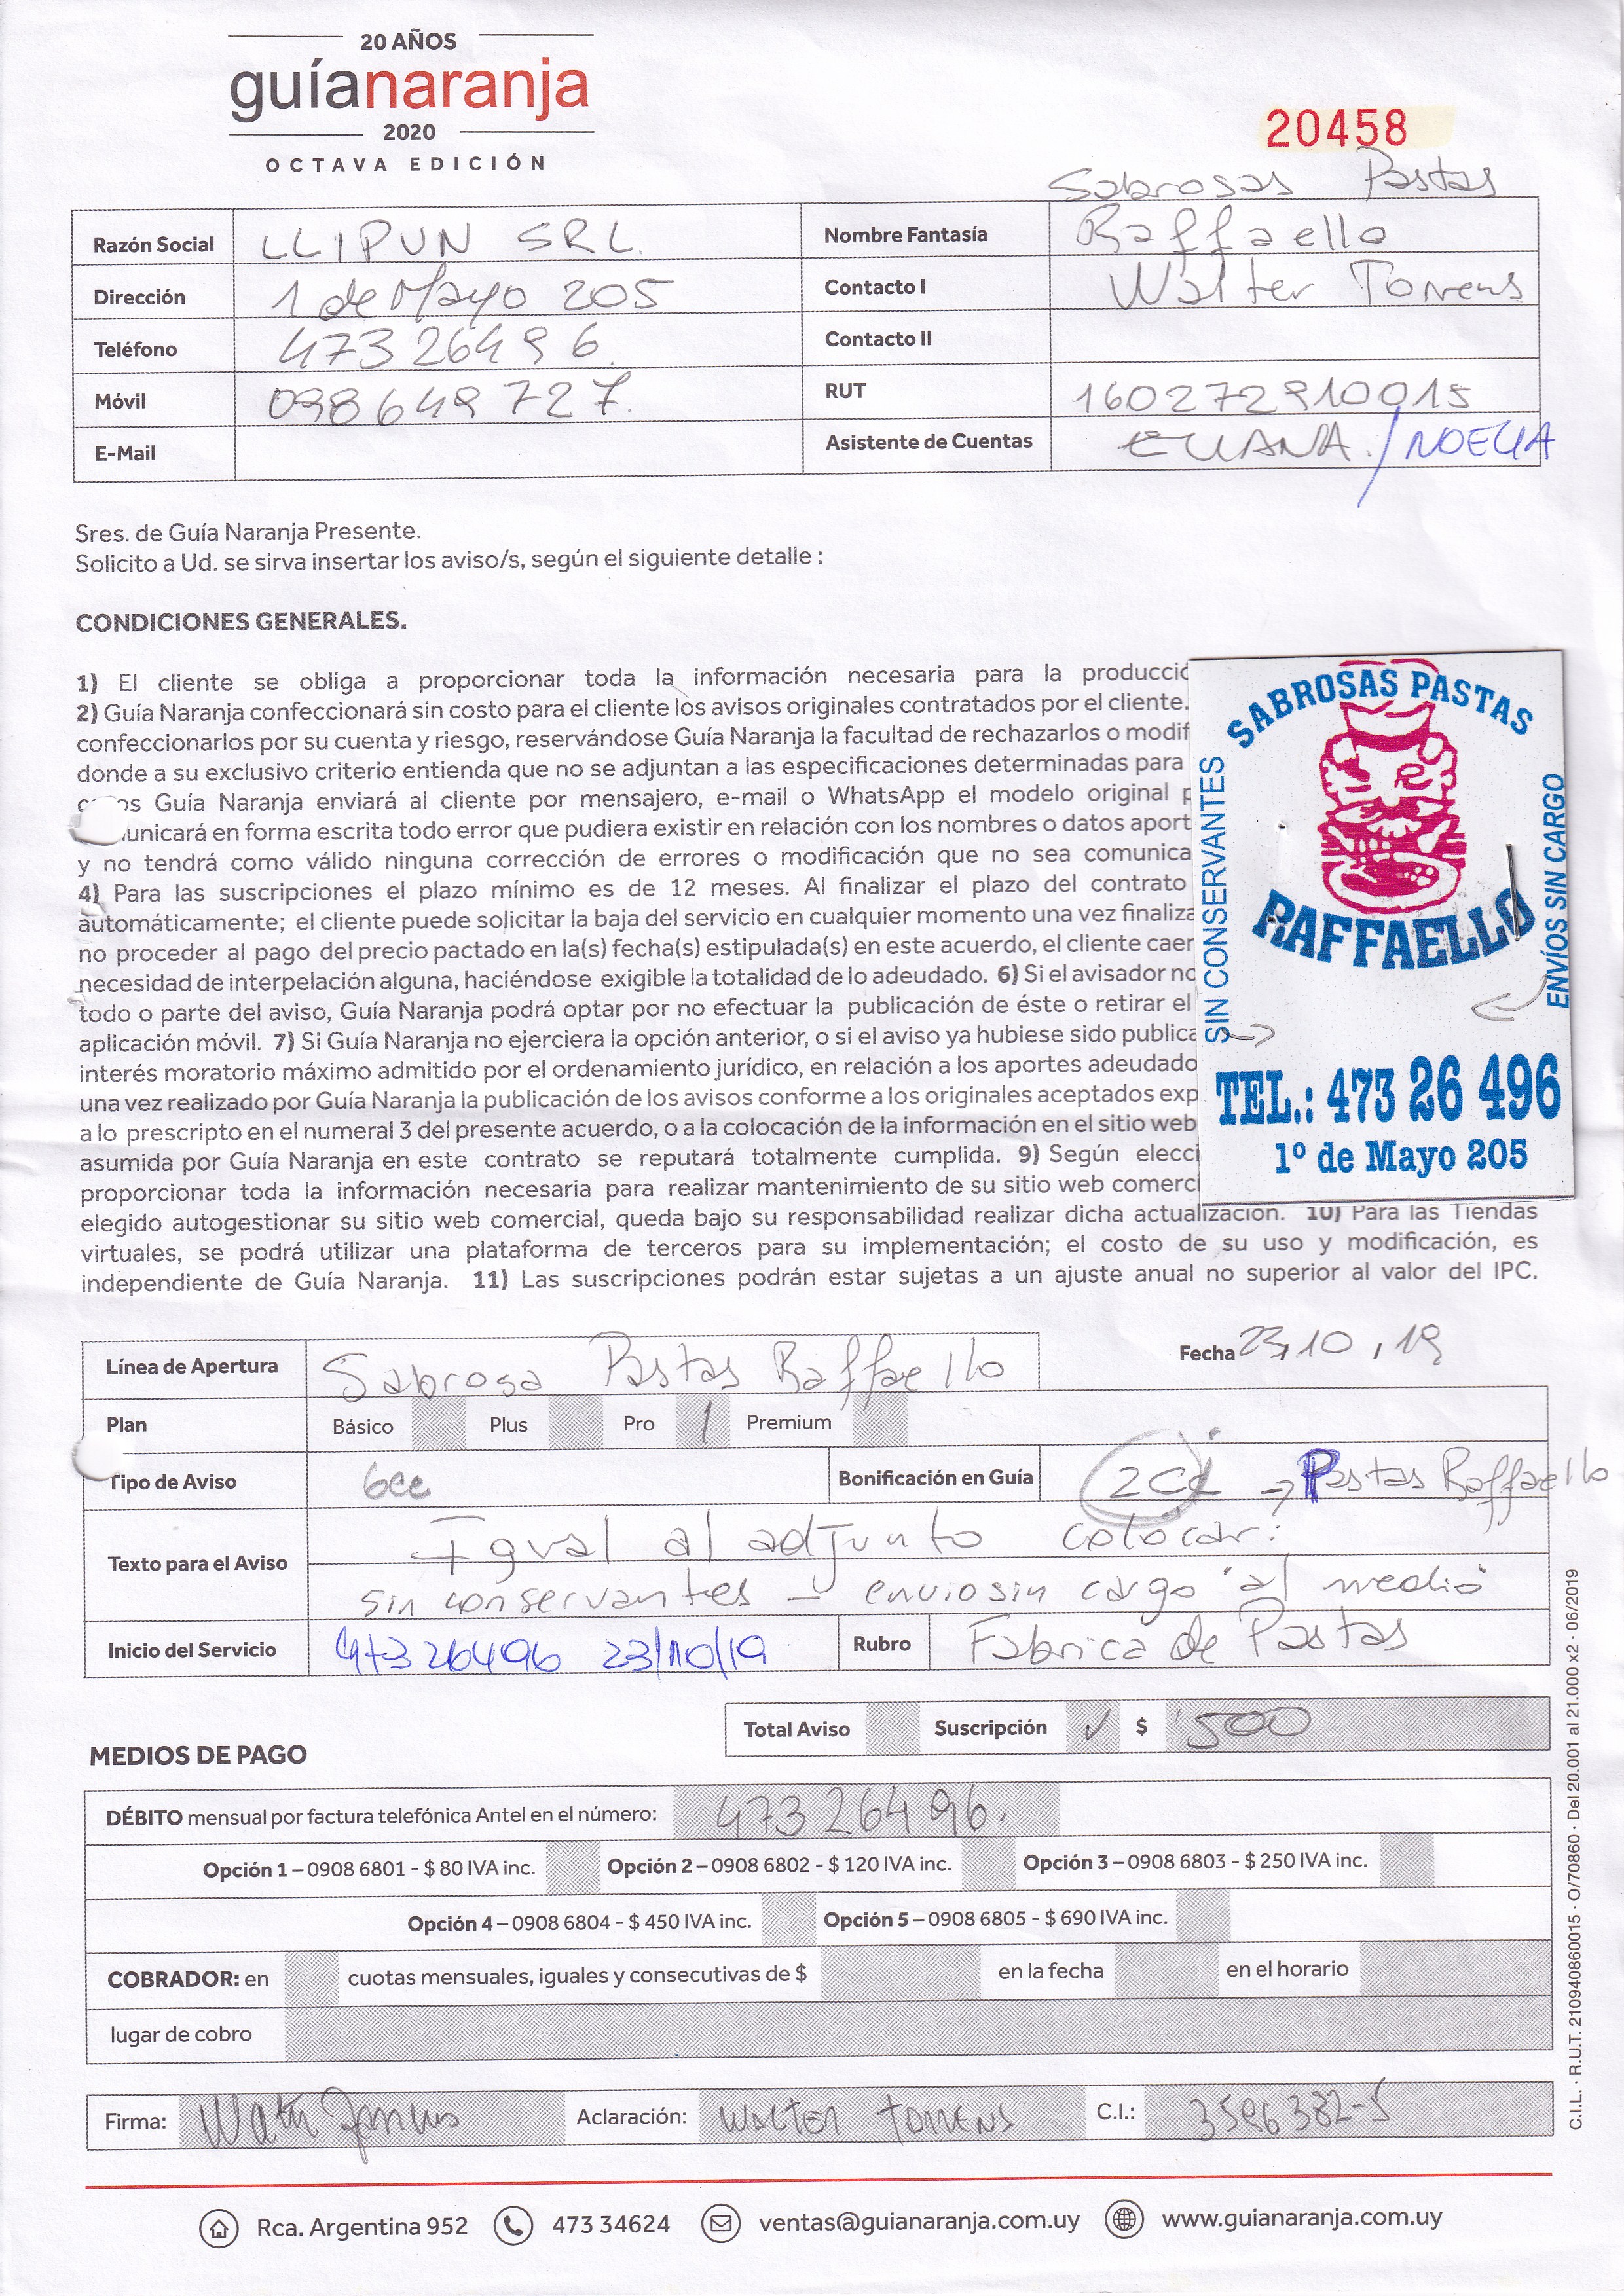 20 AÑOS
guíanaranja
2020
OCTAVA EDICIÓN
20458
Sabrosas Pastas
Razón Social LLIPUN SRL. Nombre Fantasía Raffaello
Dirección 1 de Mayo 205 Contacto I Walter Torrens
Teléfono 473 26496 Contacto II
Móvil 098649727. RUT 160272910015
E-Mail Asistente de Cuentas ELIANA. / NOELIA
Sres. de Guía Naranja Presente.
Solicito a Ud. se sirva insertar los aviso/s, según el siguiente detalle :
CONDICIONES GENERALES.
1) El cliente se obliga a proporcionar toda la información necesaria para la producció
2) Guía Naranja confeccionará sin costo para el cliente los avisos originales contratados por el cliente.
confeccionarlos por su cuenta y riesgo, reservándose Guía Naranja la facultad de rechazarlos o modif
donde a su exclusivo criterio entienda que no se adjuntan a las especificaciones determinadas para
Guía Naranja enviará al cliente por mensajero, e-mail o WhatsApp el modelo original p
unicará en forma escrita todo error que pudiera existir en relación con los nombres o datos aport
y no tendrá como válido ninguna corrección de errores o modificación que no sea comunica
4) Para las suscripciones el plazo mínimo es de 12 meses. Al finalizar el plazo del contrato
automáticamente; el cliente puede solicitar la baja del servicio en cualquier momento una vez finaliza
no proceder al pago del precio pactado en la(s) fecha(s) estipulada(s) en este acuerdo, el cliente caer
necesidad de interpelación alguna, haciéndose exigible la totalidad de lo adeudado. 6) Si el avisador no
todo o parte del aviso, Guía Naranja podrá optar por no efectuar la publicación de éste o retirar el
aplicación móvil. 7) Si Guía Naranja no ejerciera la opción anterior, o si el aviso ya hubiese sido publica
interés moratorio máximo admitido por el ordenamiento jurídico, en relación a los aportes adeudado
una vez realizado por Guía Naranja la publicación de los avisos conforme a los originales aceptados exp
a lo prescripto en el numeral 3 del presente acuerdo, o a la colocación de la información en el sitio web
asumida por Guía Naranja en este contrato se reputará totalmente cumplida. 9) Según elecci
proporcionar toda la información necesaria para realizar mantenimiento de su sitio web comerci
elegido autogestionar su sitio web comercial, queda bajo su responsabilidad realizar dicha actualización. 10) Para las Tiendas
virtuales, se podrá utilizar una plataforma de terceros para su implementación; el costo de su uso y modificación, es
independiente de Guía Naranja. 11) Las suscripciones podrán estar sujetas a un ajuste anual no superior al valor del IPC.
SABROSAS PASTAS
SIN CONSERVANTES
ENVÍOS SIN CARGO
RAFFAELLO
TEL.: 473 26 496
1º de Mayo 205
Línea de Apertura Sabrosa Pastas Raffaello Fecha 23,10,19
Plan Básico Plus Pro / Premium
Tipo de Aviso 6cc Bonificación en Guía 2CL → Pastas Raffaello
Texto para el Aviso Igual al adjunto colocar:
sin conservantes - envio sin cargo al medio
Inicio del Servicio 473 26496 23/10/19 Rubro Fabrica de Pastas
Total Aviso Suscripción ✓ $ 500
MEDIOS DE PAGO
DÉBITO mensual por factura telefónica Antel en el número: 473 26496.
Opción 1 – 0908 6801 - $ 80 IVA inc. Opción 2 – 0908 6802 - $ 120 IVA inc. Opción 3 – 0908 6803 - $ 250 IVA inc.
Opción 4 – 0908 6804 - $ 450 IVA inc. Opción 5 – 0908 6805 - $ 690 IVA inc.
COBRADOR: en cuotas mensuales, iguales y consecutivas de $ en la fecha en el horario
lugar de cobro
Firma: Aclaración: WALTER TORRENS C.I.: 3596382-5
Rca. Argentina 952 473 34624 ventas@guianaranja.com.uy www.guianaranja.com.uy
C.I.L. · R.U.T. 210940860015 · O/70860 · Del 20.001 al 21.000 x2 · 06/2019